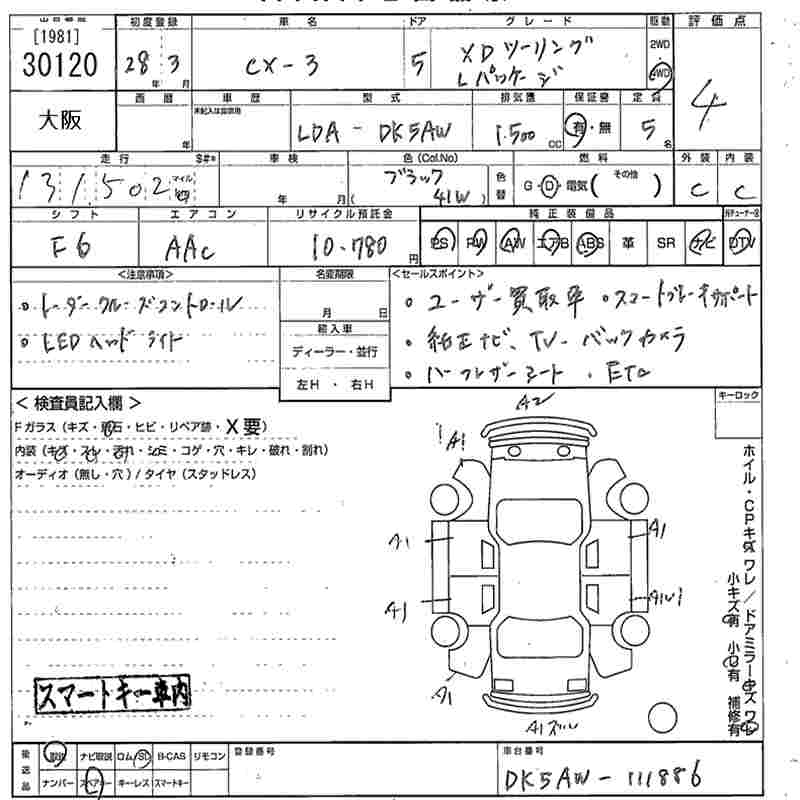 [1981]
30120
大阪
初度登録
28年 3月
車名
CX-3
ドア
5
グレード
XDツーリング
Lパッケージ
駆動
2WD
4WD
評価点
4
西暦
年
車歴
型式
LDA - DK5AW
排気量
1.500 CC
保証書
有・無
定員
5名
走行
131,502
マイル
車検
年 月(
色(Col.No)
ブラック
41W)
色替
燃料
G・D・電気( その他 )
外装
C
内装
C
シフト
F6
エアコン
AAC
リサイクル預託金
10.780円
純正装備品
PS PW AW エアB ABS 革 SR ナビ DTV
<注意事項>
。レーダークルーズコントロール
。LEDヘッドライト
名変期限
月 日
輸入車
ディーラー・並行
左H ・ 右H
<セールスポイント>
。ユーザー買取車 。スマートブレーキサポート
。純正ナビ、TV、バックカメラ
。ハーフレザーシート . ETC
キーロック
< 検査員記入欄 >
Fガラス(キズ・飛石・ヒビ・リペア跡・X要)
内装(キズ・スレ・汚れ・シミ・コゲ・穴・キレ・破れ・割れ)
オーディオ(無し・穴)/タイヤ(スタッドレス)
A2
A1
A1
A1
A1
A1
A1
スマートキー車内
ホイル・CPキズ ワレ / ドアミラーキズ ワレ
小キズ有 小凹有 補修有
後送品
取説 ナビ取説 ロム/SD B-CAS リモコン
ナンバー スペアキー キーレス スマートキー
登録番号
車台番号
DK5AW - 111886